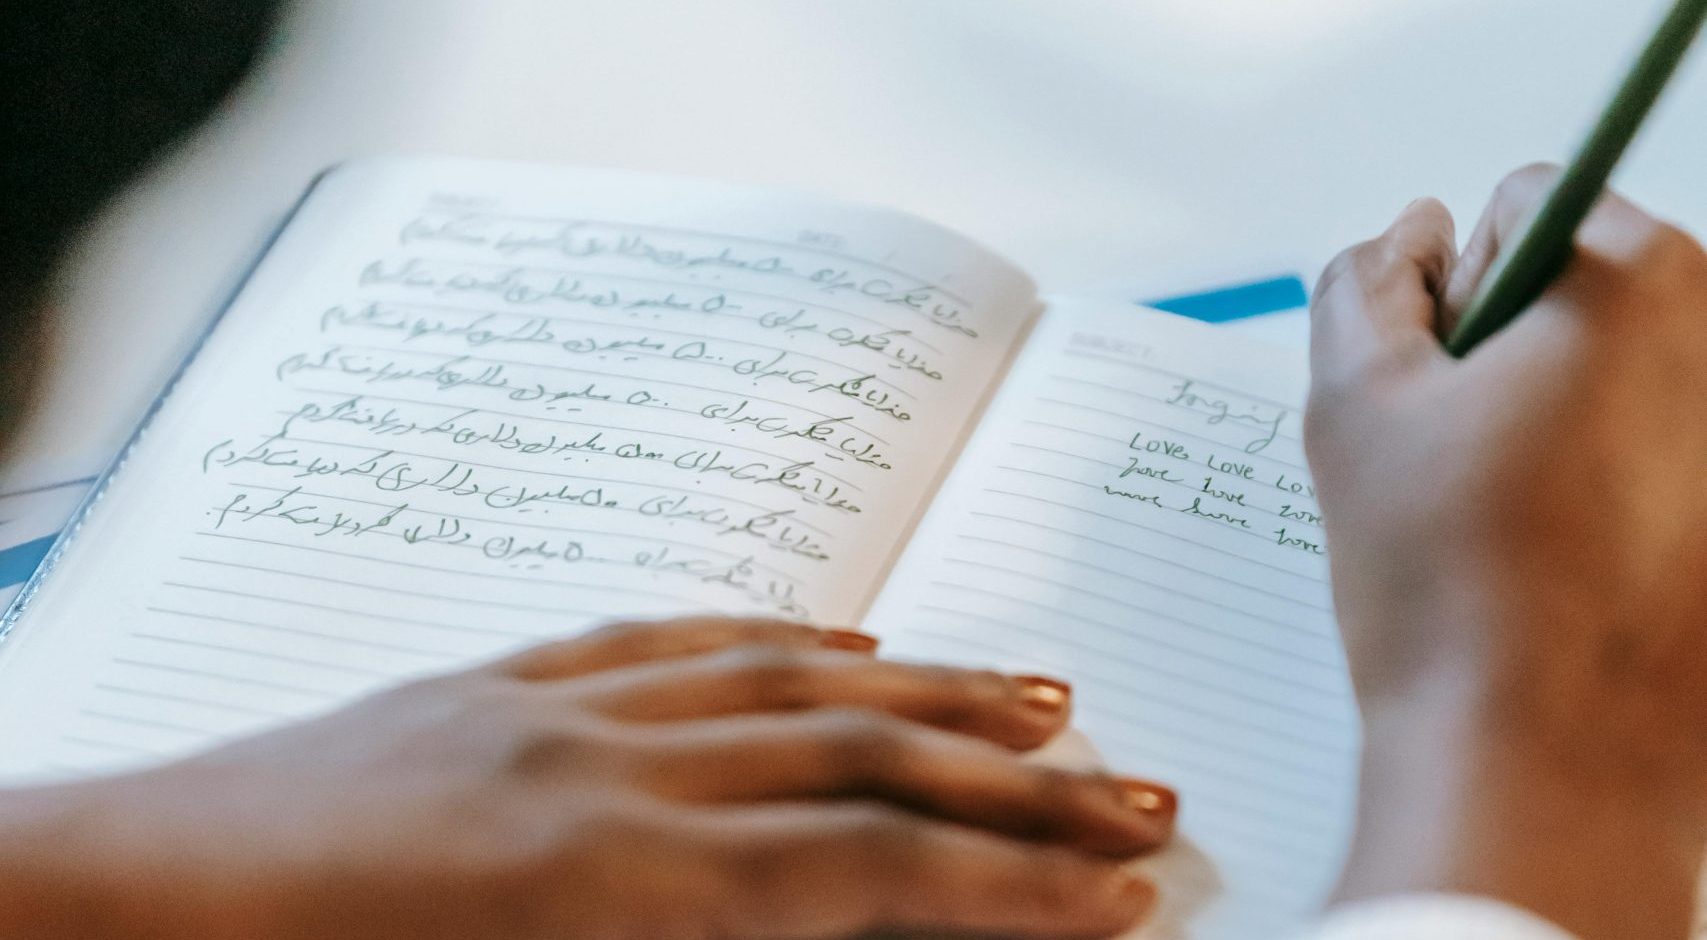 خدایا شکرت برای ۵۰ میلیون دلاری که دریافت کردم
خدایا شکرت برای ۵۰ میلیون دلاری که دریافت کردم
خدایا شکرت برای ۵۰۰ میلیون دلاری که دریافت کردم
خدایا شکرت برای ۵۰۰ میلیون دلاری که دریافت کردم
خدایا شکرت برای ۵۰۰ میلیون دلاری که دریافت کردم
خدایا شکرت برای ۵۰۰ میلیون دلاری که دریافت کردم
خدایا شکرت برای ۵۰۰ میلیون دلاری که دریافت کردم.
SUBJECT:
Love, Love Lov
Love Love Love
Love Love